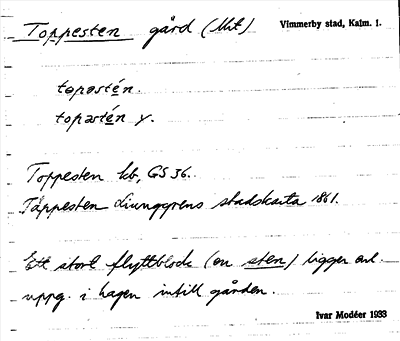 Toppesten gård (Mt) Vimmerby stad, Kalm. l.
topəstén.
topəstén y.
Toppesten kb, GS 36.
Toppesten Ljunggrens stadskarta 1861.
Ett stort flyttblock (en sten) ligger enl.
uppg. i hagen intill gården.
Ivar Modéer 1933